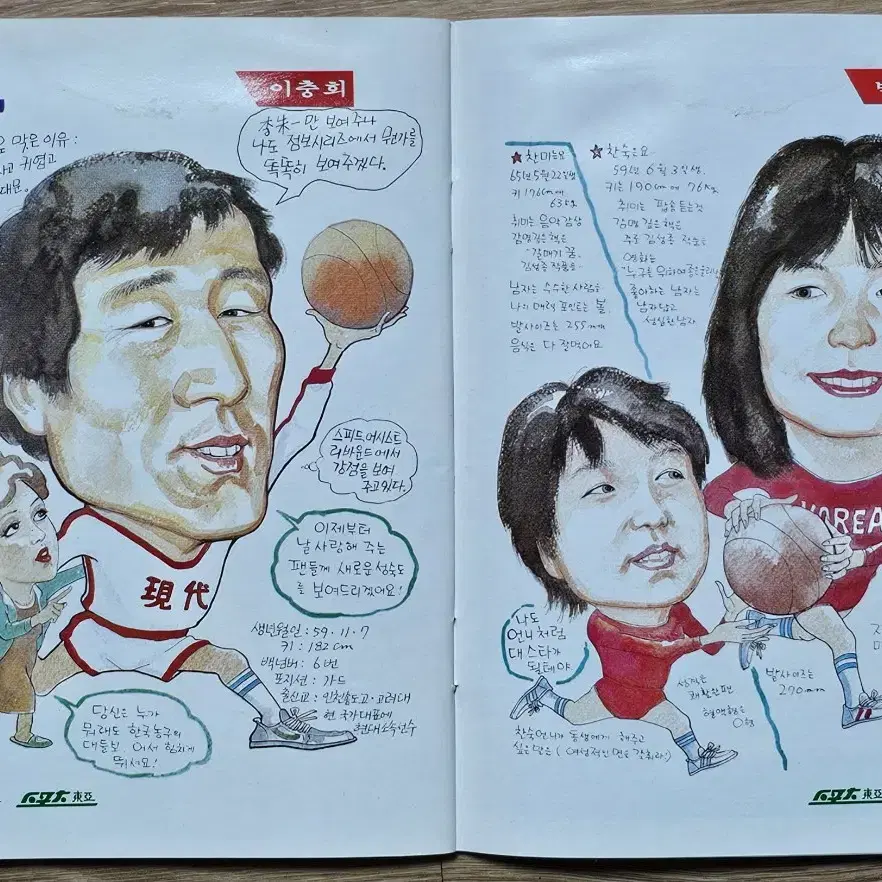 이충희
맞은 이유:
귀엽고
李朱一만 보여주나
나도 점보시리즈에서 뭔가를
똑똑히 보여주겠다.
스피드 어시스트
리바운드에서
강점을 보여
주고있다.
이제부터
날 사랑해 주는
팬들께 새로운 성숙도
를 보여드리겠어요!
現代
생년월일 : 59. 11. 7
키 : 182 cm
백넘버 : 6번
포지션 : 가드
출신교 : 인천송도고·고려대
현 국가대표에
현대소속선수
당신은 누가
뭐래도 한국농구의
대들보. 어서 힘차게
뛰세요!
스포츠東亞
★찬미는요
65년 5월 22일생
키 176cm에
63kg
취미는 음악감상
감명깊은책은
"갈매기 꿈"
김성종 작품등
남자는 순수한 사람을
나의 매력 포인트는 볼
발사이즈는 255mm
음식은 다 잘먹어요
☆찬숙은요
59년 6월 3일생
키는 190cm에 76kg
취미는 팝송듣는것
감명 깊은책은
주로 김성종 작품을
영화는
"누구를 위하여 종은 울리나"
좋아하는 남자는
남자답고
성실한 남자
KOREA
나도
언니처럼
대스타가
될테야
발사이즈는
270mm
성격은
쾌활한편
혈액형은
O형
찬숙언니가 동생에게 해주고
싶은말은 (여성적인 면을 갖춰라!)
스포츠東亞